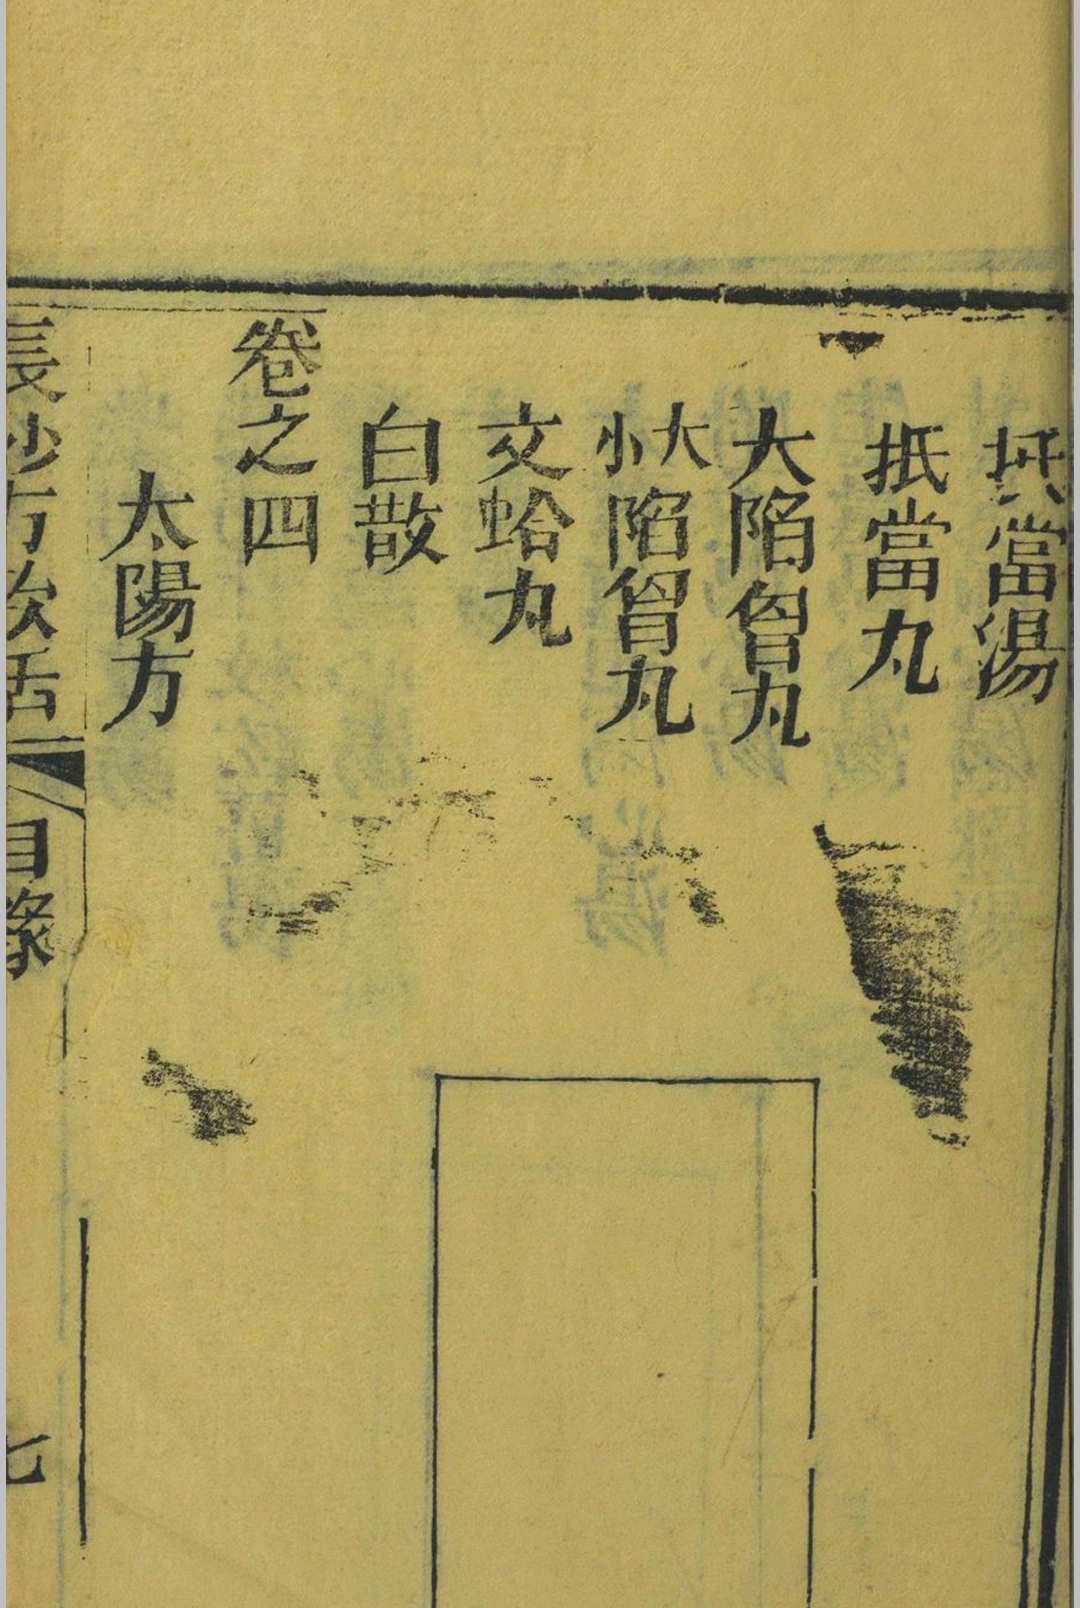 抵當湯
抵當丸
大陷胷丸
大小陷胷丸
文蛤丸
白散
卷之四
太陽方
長沙方歌括
目錄
七